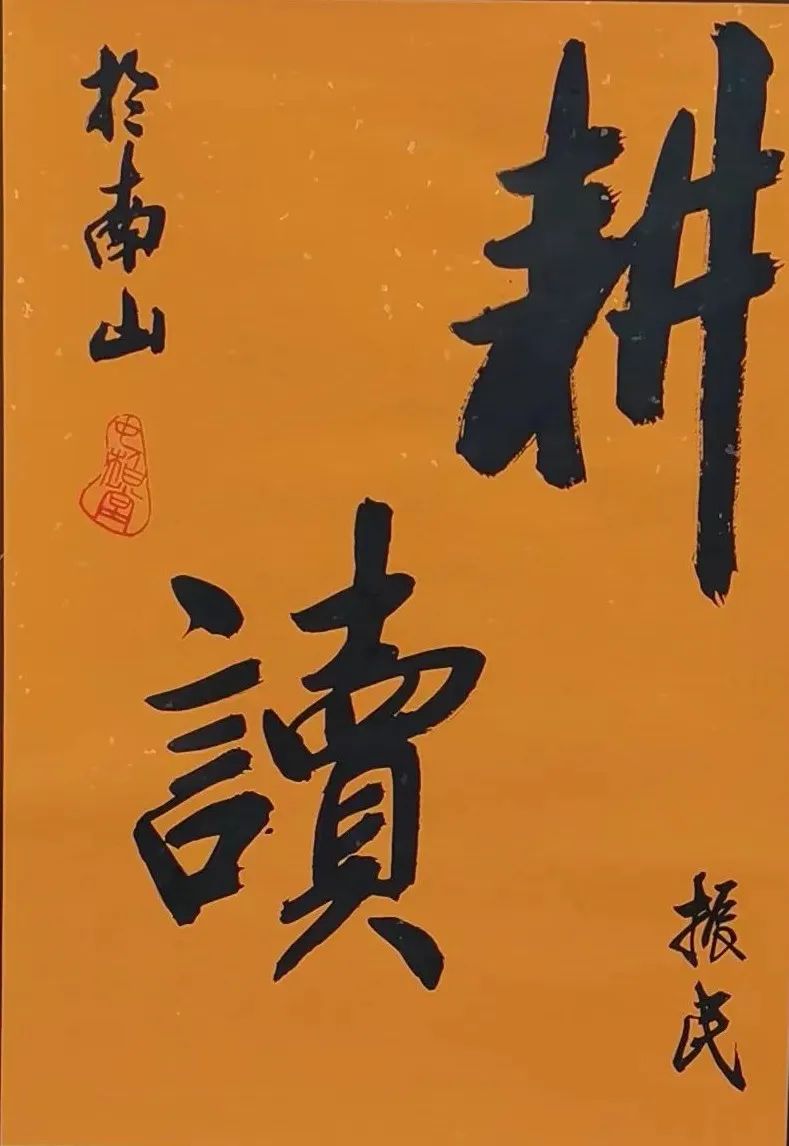 耕
讀
振民
於南山